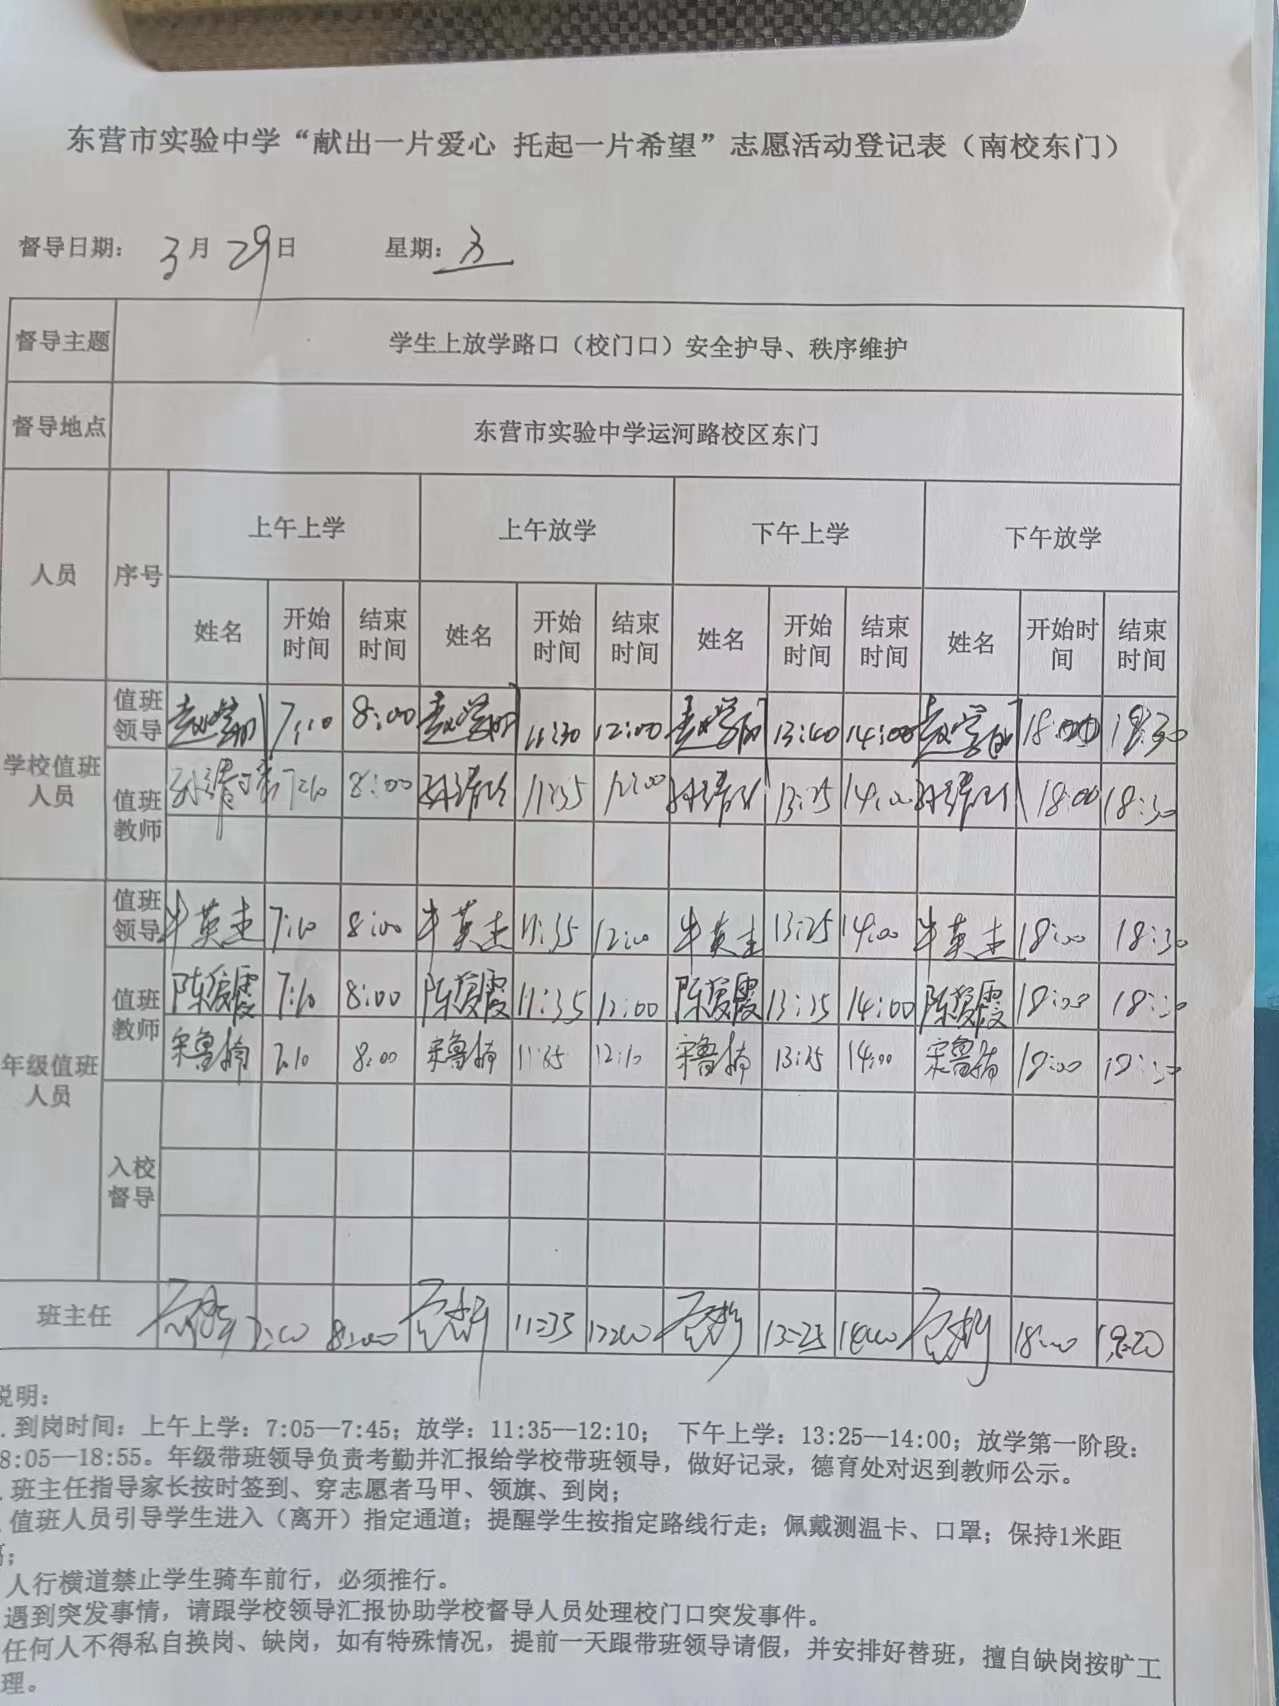 东营市实验中学“献出一片爱心 托起一片希望”志愿活动登记表（南校东门）
督导日期： 3月29日 星期：五
督导主题 学生上放学路口（校门口）安全护导、秩序维护
督导地点 东营市实验中学运河路校区东门
人员 序号 上午上学 上午放学 下午上学 下午放学
姓名 开始时间 结束时间 姓名 开始时间 结束时间 姓名 开始时间 结束时间 姓名 开始时间 结束时间
学校值班人员
值班领导 7:10 8:00 11:30 12:00 13:40 14:00 18:00 18:30
值班教师 7:10 8:00 11:35 12:00 13:25 14:00 18:00 18:30
年级值班人员
值班领导 牛英杰 7:10 8:00 牛英杰 11:35 12:00 牛英杰 13:25 14:00 牛英杰 18:00 18:30
值班教师 陈爱霞 7:10 8:00 陈爱霞 11:35 12:00 陈爱霞 13:25 14:00 陈爱霞 18:00 18:30
宋鲁楠 7:10 8:00 宋鲁楠 11:35 12:10 宋鲁楠 13:25 14:00 宋鲁楠 18:00 18:30
入校督导
班主任 8:00 11:35 12:00 13:25 14:00 18:00
说明：
.到岗时间：上午上学：7:05—7:45；放学：11:35—12:10； 下午上学：13:25—14:00；放学第一阶段：
8:05—18:55。年级带班领导负责考勤并汇报给学校带班领导，做好记录，德育处对迟到教师公示。
.班主任指导家长按时签到、穿志愿者马甲、领旗、到岗；
.值班人员引导学生进入（离开）指定通道；提醒学生按指定路线行走；佩戴测温卡、口罩；保持1米距
离；
人行横道禁止学生骑车前行，必须推行。
遇到突发事情，请跟学校领导汇报协助学校督导人员处理校门口突发事件。
任何人不得私自换岗、缺岗，如有特殊情况，提前一天跟带班领导请假，并安排好替班，擅自缺岗按旷工
理。